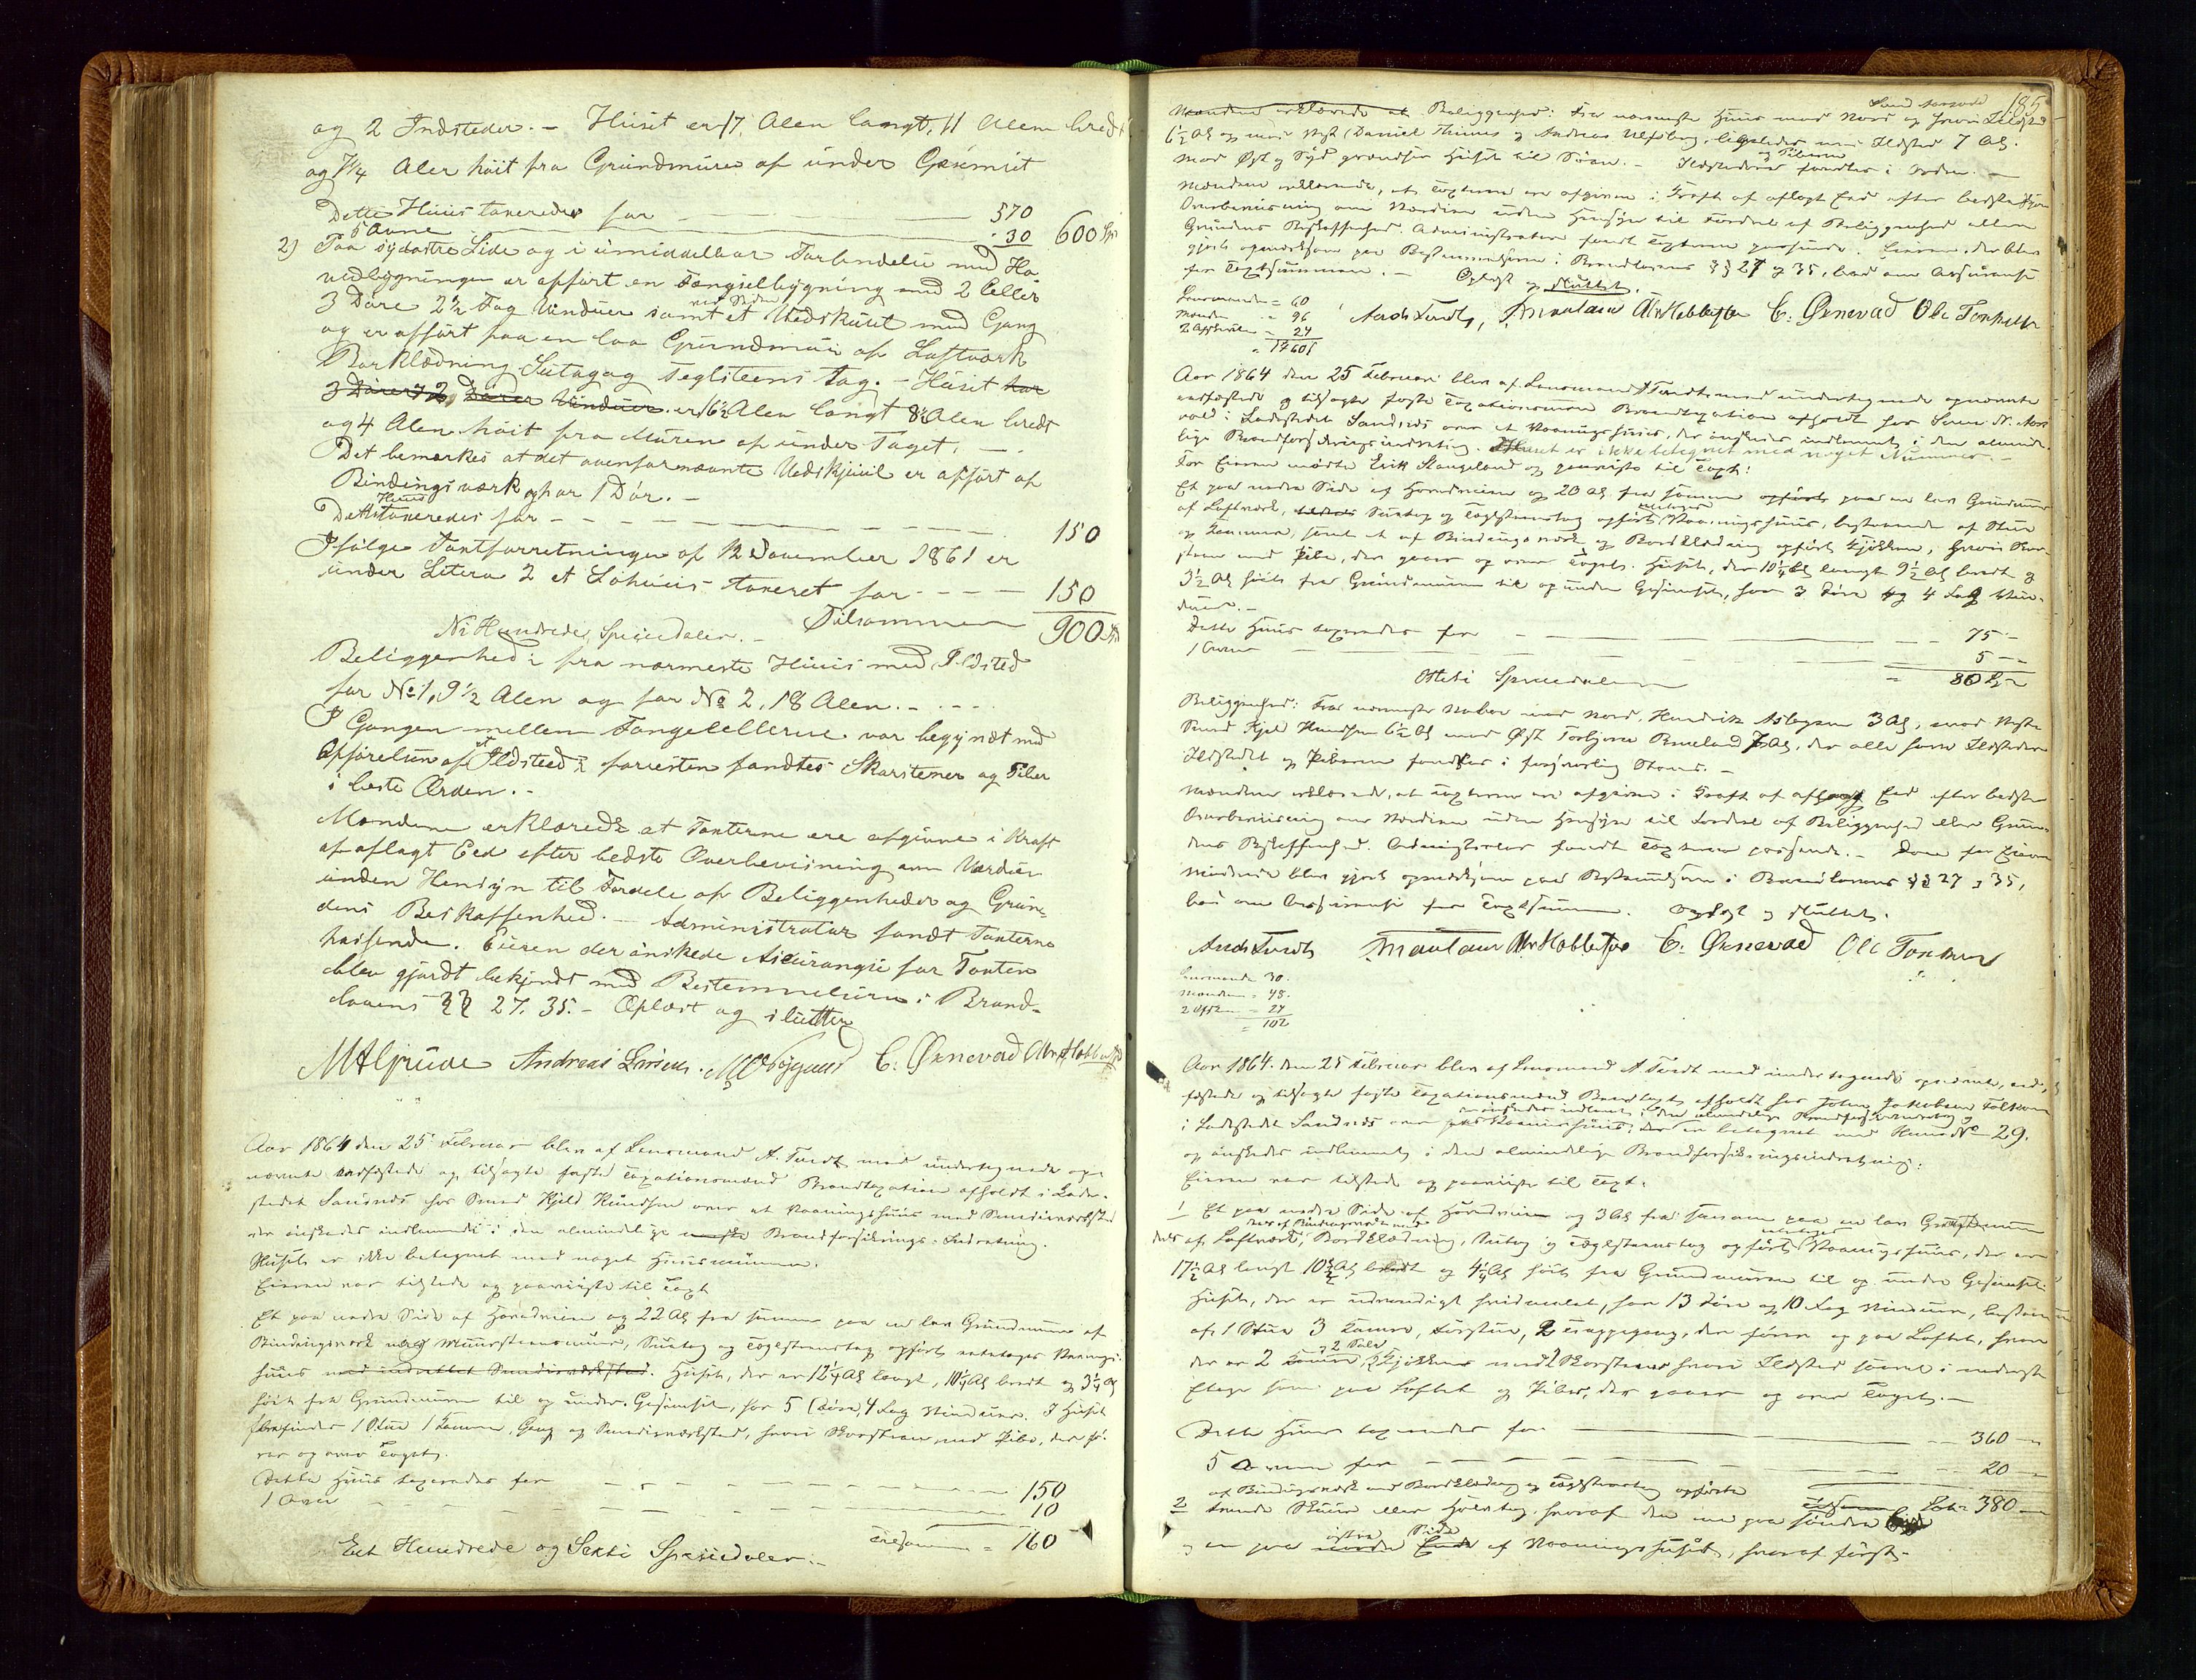 og 2 Indsteder. - Huset er 17 Alen langt, 11 Alen bredt
og 7 1/4 Alen høit fra Grundmuren op under Gesimset
Dette Huus taxeredes for — 570
5 Ovne — 30 600 Spd
2) Paa sydostre Side og i umiddelbar Forbindelse med Ho
vedbygningen er opført en Fængselbygning med 2 Celler
3 Døre 2 1/2 Fag Vinduer samt et ved Siden Vedskuur med Gang
og er opført paa en lav Grundmuur af Laftværk
Bordklædning Sutag og teglsteens tag. - Huset har
3 Dører og 2 Dører Vinduer. er 16 1/2 Alen langt 8 1/2 Alen bredt
og 4 Alen høit fra Muren op under Taget. —
Det bemærkes at det ovenfornævnte Vedskjuul er opført af
Bindingsværk og har 1 Dør. -
Dette Huus taxeredes for — 150
Ifølge Taxtforretningen af 12 November 1861 er
under Litera 2 et Løhuus taxeret for - - - 150
Tilsammen 900 Spd
Ni Hundrede Speciedaler. -
Beliggenhed: fra nærmeste Huus med Ildsted
for No 1, 9 1/2 Alen og for No 2, 18 Alen. - . - -
I Gangen mellem Fangecellerne var begyndt med
Opførelsen af et Ildsted: forresten fandtes Skorstener og Piber
i beste Orden. -
Mændene erklærede at Taxterne ere afgivne i Kraft
af aflagt Eed efter bedste Overbeviisning om Værdien
uden Hensyn til Fordele af Beliggenheden og Grun-
dens Beskaffenhed. — Administrator fandt Taxterne
passende. Eieren der ønskede Assurance for Taxten
blev gjordt bekjendt med Bestemmelserne i Brand-
lovens §§ 27. 35. - Oplæst og sluttet
Andreas Larsen. C. Ørnevad
Aar 1864 den 25 Februar blev af Lensmand A. Tuedt med undertegnede op-
nævnte edfæstede og tilsagte faste Taxationsmænd Brandtaxation afholdt i Lade-
stedet Sandnæs hos Smed Kjeld Knudsen over et Vaaningshuus med Smedieværksted
der ønskedes indlemmet i den almindelige Brandforsikrings-Indretning.
Huset er ikke betegnet med noget Huusnummer.
Eieren var tilstede og paaviiste til Taxt
Et paa nedre Side af Hovedveien og 22 Al fra samme paa en lav Grundmuur af
Bindingsværk med Muursteensmuur, Sutag og Teglsteenstag opført eetetages Vaanings-
huus med indrettet Smedieværksted. Huset, der er 12 1/4 Al langt, 10 1/4 Al bredt og 3 1/4 Al
høit fra Grundmuren til op under Gesimset, har 5 Døre, 4 Fag Vinduer. I Huset
forefindes 1 Stue 1 Kammer, Gang og Smedieværksted, hvori Skorsteen med Pibe, der fø-
rer op over Taget.
Dette Huus taxeredes for — 150
1 Ovn — 10
Tilsammen = 160
Eet Hundrede og Sexti Speciedaler. -
185
Mændene erklærede at Beliggenhed: Fra nærmeste Huus mod Nord og hvori Ildsted
6 1/2 Al og mod Vest Daniel Thimes og Andreas Ulfsberg, ligeledes med Ildsted 7 Al.
Mod Øst og Syd grændser Huset til Søen. - Ildstederne og Piberne fandtes i Orden. —
Mændene erklærede, at Taxterne ere afgivne i Kraft af aflagt Eed efter bedste
Overbeviisning om Værdien uden Hensyn til Fordeel af Beliggenhed eller
Grundens Beskaffenhed. Administrator fandt Taxterne passende. Eieren, der blev
gjort opmærksom paa Bestemmelserne i Brandlovens §§ 27 og 35, bad om Assurance
for Taxtsummen. — Oplæst og sluttet.
Lensmanden = 60
Mændene = 96
2 Afskrivter = 24
C. Ørnevad
Aar 1864 den 25 Februar blev af Lensmand A Tuedt med undertegnede opnævnte
edfæstede og tilsagte faste Taxationsmænd Brandtaxation afholdt hos
i Ladestedet Sandnæs over et Vaaningshuus, der ønskedes indlemmet i den alminde-
lige Brandforsikringsindretning. Huset er ikke betegnet med noget Nummer. -
For Eieren mødte Erik Stangeland og paaviiste til Taxt:
Et paa nedre Side af Hovedveien og 20 Al fra samme opført paa en lav Grundmuur
af Laftværk, Sutag og Teglsteenstag opført eenetages Vaaningshuus, bestaaende af Stue
og Kammer, samt et af Bindingsværk og Bordklædning opført Kjøkken, hvori Skor-
steen med Pibe, der gaaer op over Taget. Huset, der 10 1/4 Al langt 9 1/2 Al bredt og
3 1/2 Al høit fra Grundmuren til op under Gesimset, har 3 Døre og 4 Fag Vin-
duer. -
Dette Huus taxeredes for — 75 -
1 Ovn — 5 -
Otteti Speciedaler = 80 Spd
Beliggenhed: Fra nærmeste Nabo mod Nord, Hendrik Aslagsen 3 Al, mod Vest
Smed Kjel Knudsen 6 1/2 Al mod Øst Torbjørn 7 Al, der alle have Ildsteder
Ildstedet og Piberne fandtes i forsvarlig Stand. -
Mændene erklærede, at Taxterne ere afgivne i Kraft af aflagt Eed efter bedste
Overbeviisning om Værdien uden Hensyn til Fordeel af Beliggenhed eller Grun-
dens Beskaffenhed. Administrator fandt Taxterne passende. - Den for Eieren
mødende blev gjort opmærksom paa Bestemmelserne i Brandlovens §§ 27 og 35,
bad om Assurance for Taxtsummen. Oplæst og sluttet.
C. Ørnevad
Lensmanden 30.
Mændene = 48.
2 Afskr = 24
= 102
Aar 1864 den 25 Februar blev af Lensmand A Tuedt med undertegnede opnævnte, ed-
fæstede og tilsagte faste Taxationsmænd Brandtaxt afholdt hos John Jakobsen
i Ladestedet Sandnæs over Vaaningshuus, der er betegnet med Huus No 29.
og ønskedes indlemmet i den almindelige Brandforsikringsindretning:
Eieren var tilstede og paaviiste til Taxt:
1 Et paa nedre Side af Hovedveien og 3 Al fra samme paa en lav Grundmuur
deels af Laftværk, deels af Bindingsværk med Bordklædning, Sutag og Teglsteenstag opført Vaaningshuus, der er
17 1/2 Al langt 10 1/2 Al bredt og 4 1/4 Al høit fra Grundmuren til op under Gesimset.
Huset, der er udvendigt hvidmalet, har 13 Døre og 10 Fag Vinduer, bestaaende
af 1 Stue 3 Kamre, Forstue, 2 Trappegang, der fører op paa Loftet, hvor
der er 2 Kamre og 2 Sale, Kjøkken med 2 Skorstene hvori Ildsted saavel i nederste
Etage som paa Loftet og Piber, der gaaer op over Taget. -
Dette Huus taxeredes for — 360 -
5 Ovne for — 20 -
Lat. 380 -
2 af Bindingsværk med Bordklædning og Teglsteenstag opførte
tvende Skuur eller Halvtag, hvoraf den ene paa søndre
og en paa østre Side af Vaaningshuset, hvoraf først-